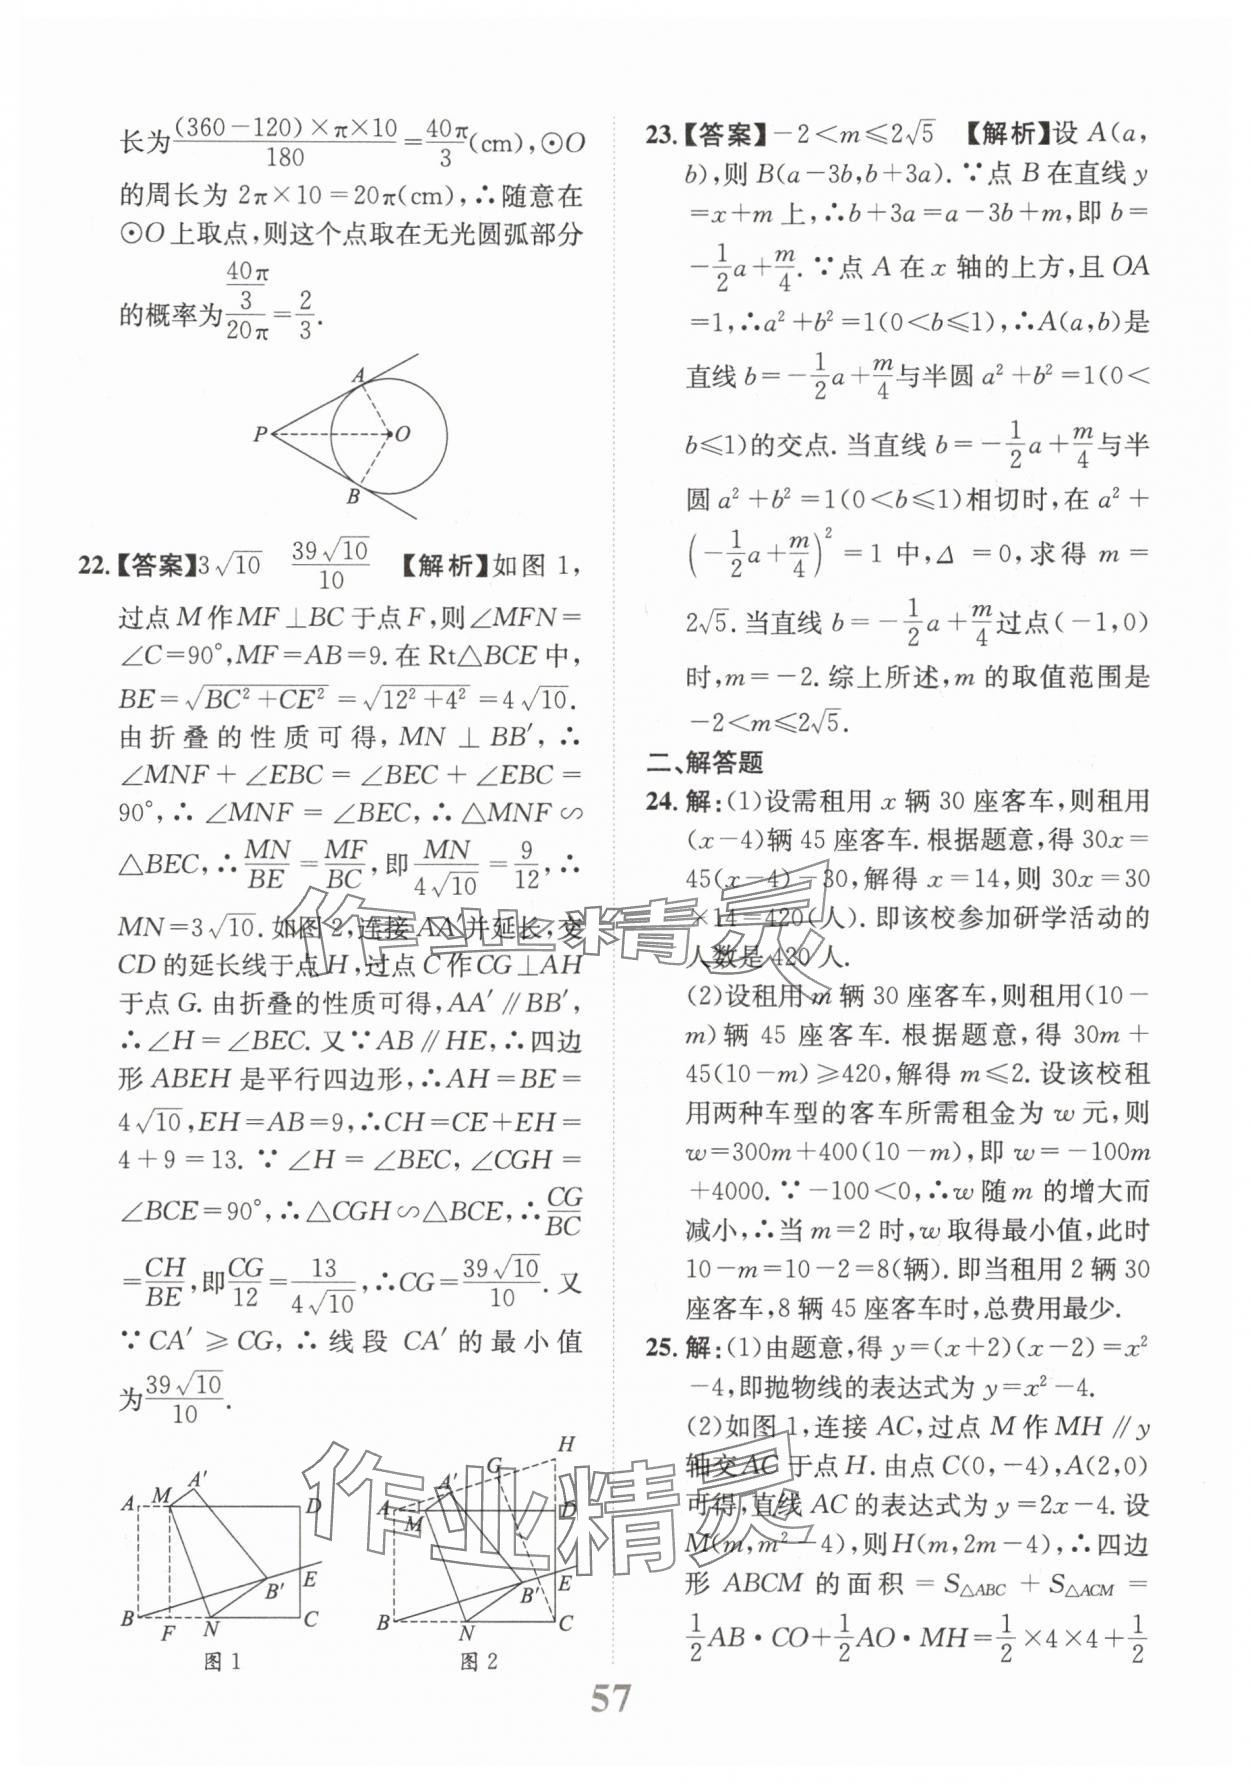 长为(360-120)×π×10/180=40π/3(cm),⊙O
的周长为 2π×10=20π(cm),∴随意在
⊙O上取点,则这个点取在无光圆弧部分
的概率为(40π/3)/20π=2/3.
A
P
O
B
22.【答案】3√10 39√10/10 【解析】如图 1,
过点 M 作 MF⊥BC 于点 F,则∠MFN=
∠C=90°,MF=AB=9.在 Rt△BCE 中,
BE=√(BC²+CE²)=√(12²+4²)=4√10.
由折叠的性质可得,MN⊥BB′,∴
∠MNF+∠EBC=∠BEC+∠EBC=
90°,∴∠MNF=∠BEC,∴△MNF∽
△BEC,∴MN/BE=MF/BC,即MN/4√10=9/12,∴
MN=3√10.如图2,连接AA′并延长,交
CD的延长线于点H,过点C作CG⊥AH
于点G.由折叠的性质可得,AA′∥BB′,
∴∠H=∠BEC.又∵AB∥HE,∴四边
形ABEH是平行四边形,∴AH=BE=
4√10,EH=AB=9,∴CH=CE+EH=
4+9=13.∵∠H=∠BEC,∠CGH=
∠BCE=90°,∴△CGH∽△BCE,∴CG/BC
=CH/BE,即CG/12=13/4√10,∴CG=39√10/10.又
∵CA′≥CG,∴线段 CA′的最小值
为39√10/10.
A M A′ D
B′ E
B F N C
图 1
H
G
A A′ D
M
B′ E
B N C
图 2
23.【答案】-2<m≤2√5 【解析】设 A(a,
b),则 B(a-3b,b+3a).∵点 B 在直线 y
=x+m 上,∴b+3a=a-3b+m,即 b=
-1/2a+m/4.∵点 A 在 x 轴的上方,且 OA
=1,∴a²+b²=1(0<b≤1),∴A(a,b)是
直线 b=-1/2a+m/4与半圆 a²+b²=1(0<
b≤1)的交点.当直线 b=-1/2a+m/4与半
圆 a²+b²=1(0<b≤1)相切时,在 a²+
(-1/2a+m/4)²=1 中,Δ=0,求得 m=
2√5.当直线 b=-1/2a+m/4过点(-1,0)
时,m=-2.综上所述,m 的取值范围是
-2<m≤2√5.
二、解答题
24.解:(1)设需租用 x 辆 30 座客车,则租用
(x-4)辆 45 座客车.根据题意,得 30x=
45(x-4)-30,解得 x=14,则 30x=30
×14=420(人).即该校参加研学活动的
人数是420人.
(2)设租用 m 辆 30 座客车,则租用(10-
m)辆 45 座客车.根据题意,得 30m+
45(10-m)≥420,解得 m≤2.设该校租
用两种车型的客车所需租金为 w 元,则
w=300m+400(10-m),即 w=-100m
+4000.∵-100<0,∴w 随 m 的增大而
减小,∴当 m=2 时,w 取得最小值,此时
10-m=10-2=8(辆).即当租用 2 辆 30
座客车,8 辆 45 座客车时,总费用最少.
25.解:(1)由题意,得 y=(x+2)(x-2)=x²
-4,即抛物线的表达式为 y=x²-4.
(2)如图 1,连接 AC,过点 M 作 MH∥y
轴交 AC 于点 H.由点 C(0,-4),A(2,0)
可得,直线 AC 的表达式为 y=2x-4.设
M(m,m²-4),则H(m,2m-4),∴四边
形 ABCM 的面积=S△ABC+S△ACM=
1/2AB·CO+1/2AO·MH=1/2×4×4+1/2
57
作业精灵
作业精灵